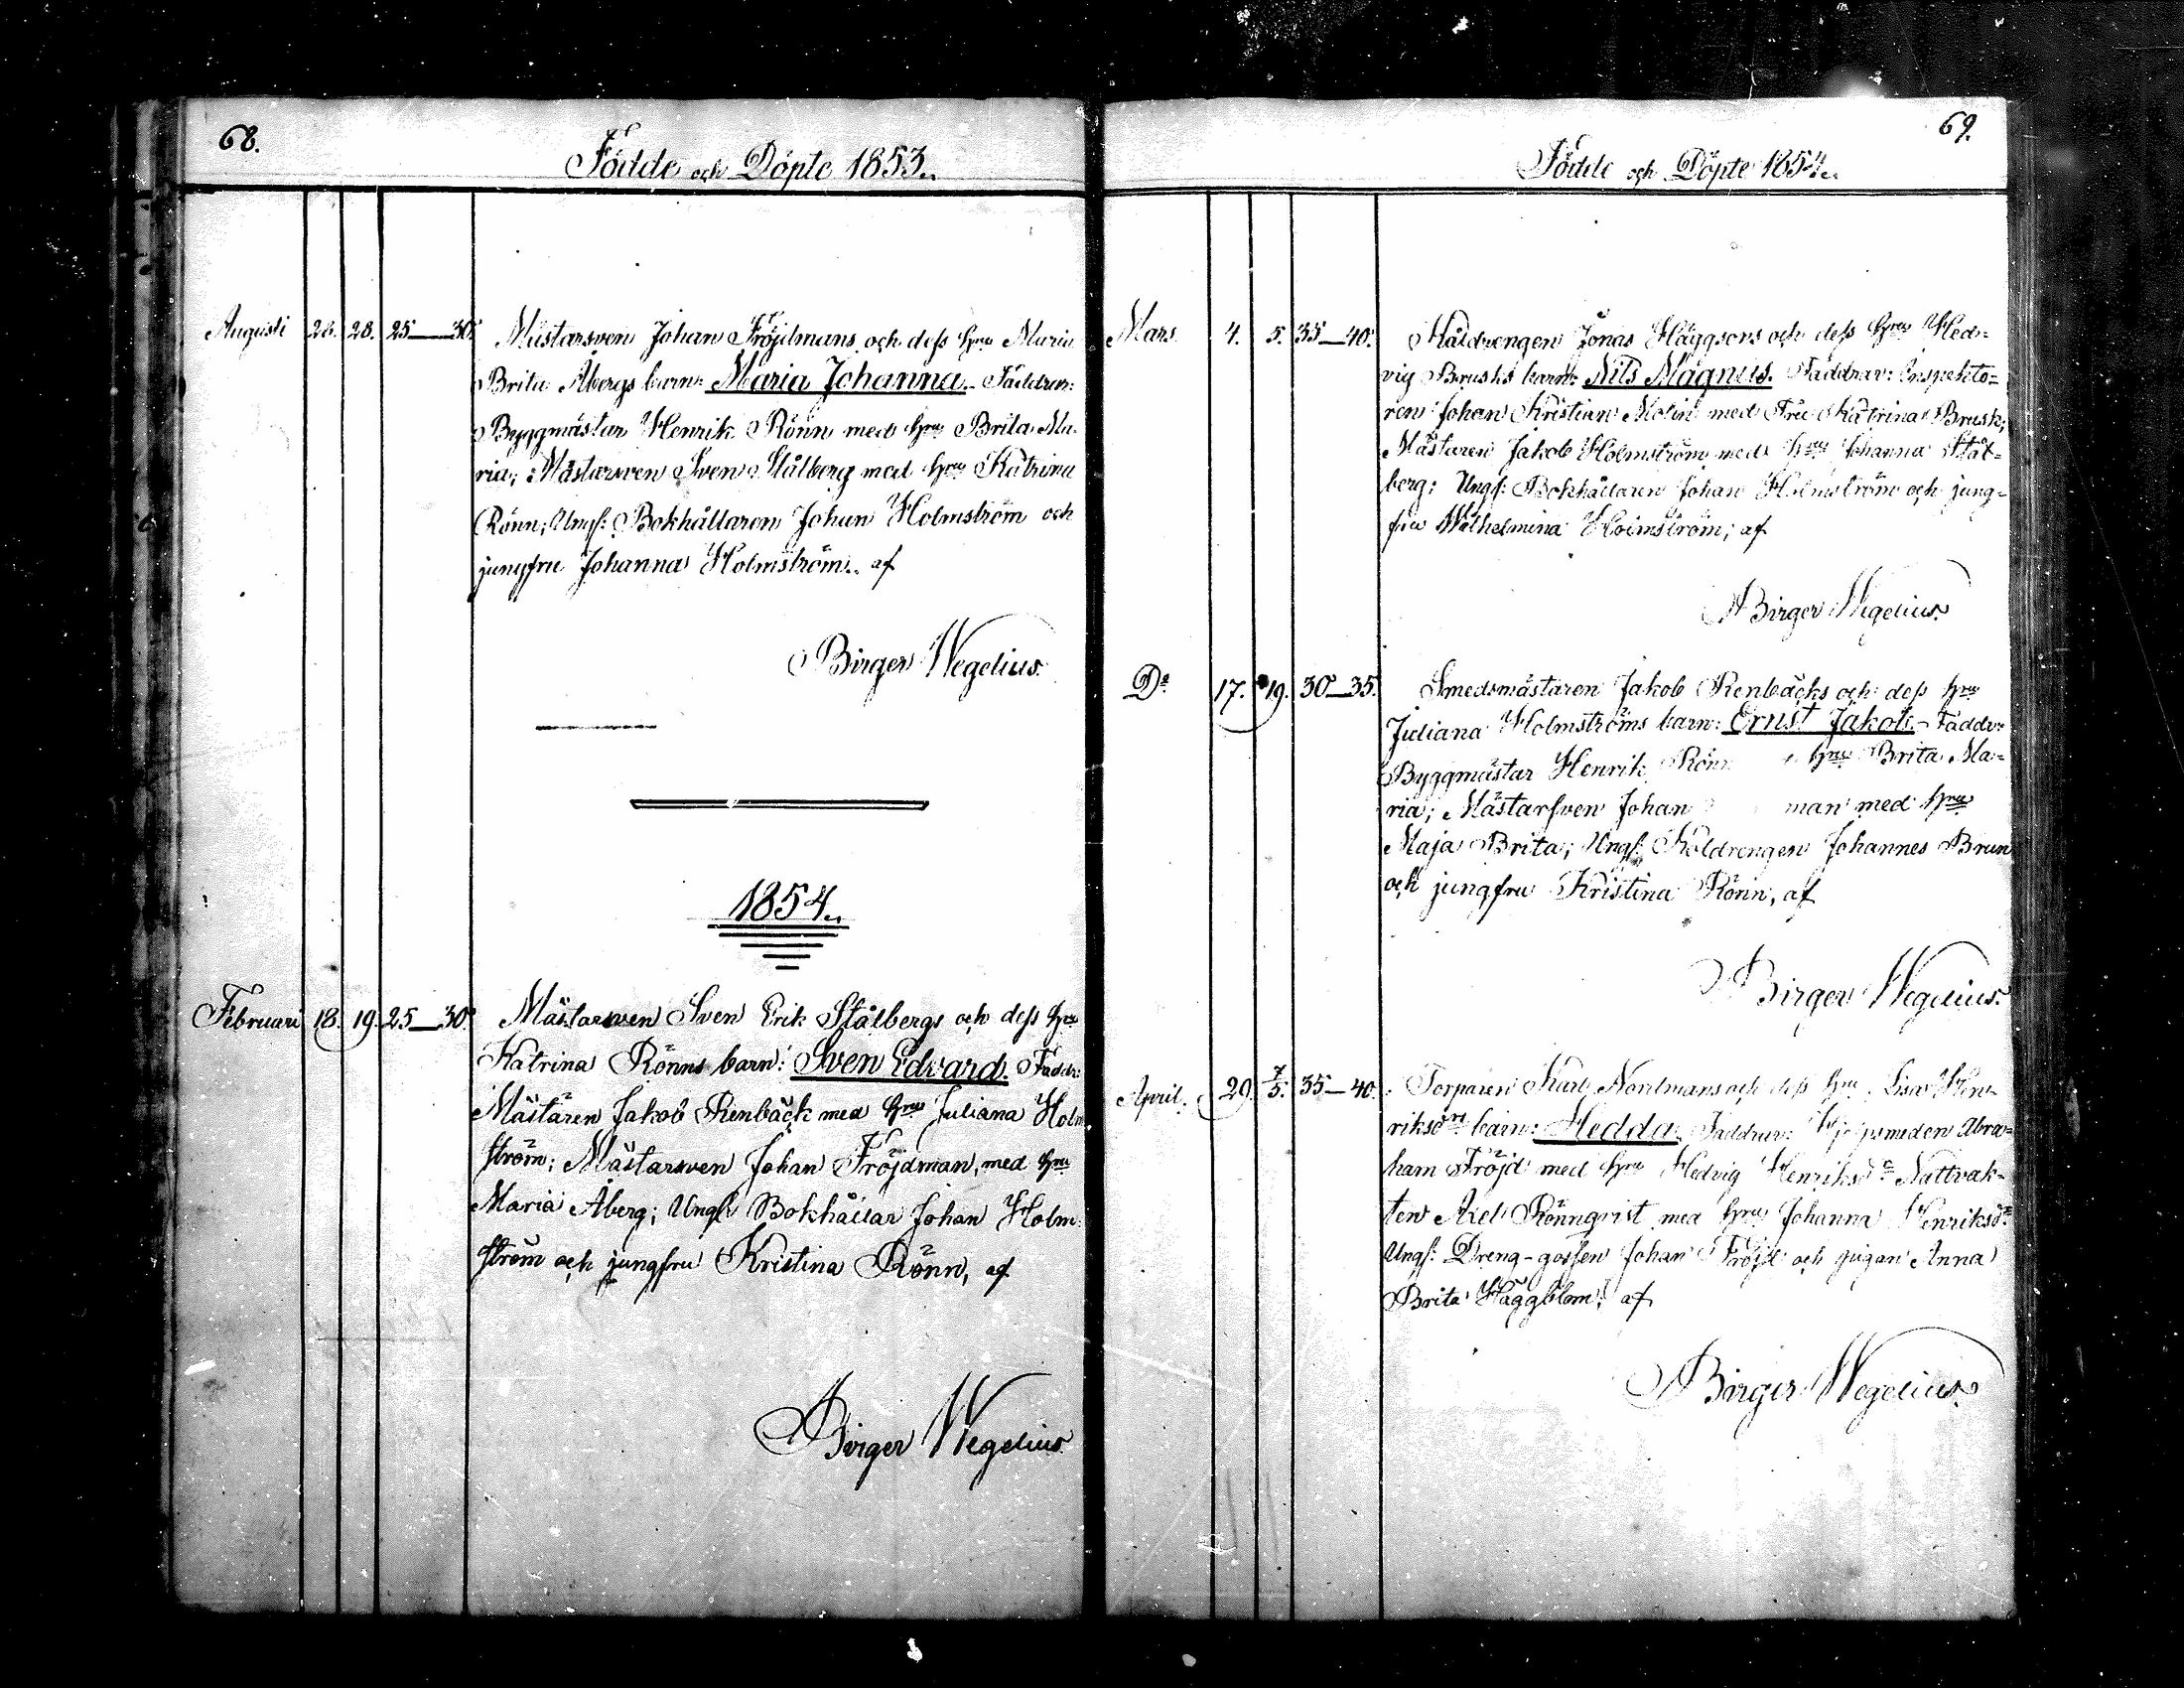 68.
Födde och Döpte 1853.
Augusti 28. 28. 25—30. Mästarsven Johan Fröjdmans och dess hru Maria
Brita Åbergs barn: Maria Johanna. Faddrar:
Byggmästar Henrik Rönn med hru Brita Ma-
ria; Mästarsven Sven Stålberg med hru Katrina
Rönn; Ungf: Bokhållaren Johan Holmström och
jungfru Johanna Holmström. af
Birger Wegelius.
1854.
Februari 18. 19. 25—30. Mästarsven Sven Erik Stålbergs och dess hru
Katrina Rönns barn: Sven Edvard. Faddr:
Mästaren Jakob Renbäck med hru Juliana Holm
ström; Mästarsven Johan Fröjdman, med hru
Maria Åberg; Ungf: Bokhållar Johan Holm-
ström och jungfru Kristina Rönn, af
Birger Wegelius
69.
Födde och Döpte 1854.
Mars. 4. 5. 35—40. Jonas Häggsons och dess hru Hed-
vig Brusks barn: Nils Magnus. Faddrar: Inspekto-
ren Johan Kristian Molin med Fru Katrina Brusk;
Mästaren Jakob Holmström med hru Johanna Stål-
berg; Ungf: Bokhållaren Johan Holmström och jung-
fru Wilhelmina Holmström; af
Birger Wegelius.
Do 17. 19. 30—35. Smedsmästaren Jakob Renbäcks och dess hru
Juliana Holmströms barn: Ernst Jakob. Faddr:
Byggmästar Henrik Rönn hru Brita Ma-
ria; Mästarsven Johan man med hru
Maja Brita; Ungf: Koldrengen Johannes Brun
och jungfru Kristina Rönn, af
Birger Wegelius.
April. 29. 7/5. 35—40. Torparen Karl Nordmans och dess hru Lisa Hen-
riksdrs barn: Hedda. Faddrar: Abra-
ham Fröjd med hru Hedvig Henriksdr Nattvak-
ten Axel Rönnqvist med hru Johanna Henriksdr
Ungf: Dreng-gossen Johan Fröjd och pigan Anna
Brita Häggblom; af
Birger Wegelius.